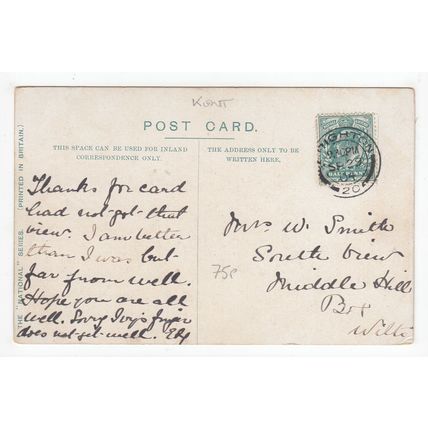 Kent
POST CARD.
THIS SPACE CAN BE USED FOR INLAND
CORRESPONDENCE ONLY.
THE ADDRESS ONLY TO BE
WRITTEN HERE.
THE "NATIONAL" SERIES. (PRINTED IN BRITAIN.)
Thanks for card
had not got that
view. I am better
than I was but
far from well.
Hope you are all
well. Sorry Ivy's finger
does not get well.
BRIGHTON
HALF PENNY
Mrs W. Smith
South View
Middle Hill
Box
Wilts
75p